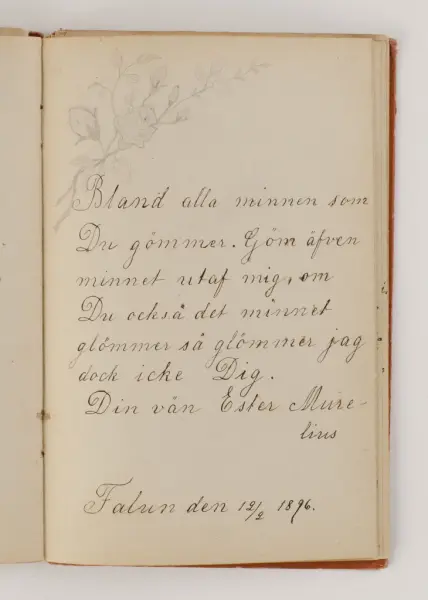 Bland alla minnen som
Du gömmer. Göm äfven
minnet utaf mig, om
Du också det minnet
glömmer så glömmer jag
dock icke Dig.
Din vän Ester Mure-
lius
Falun den 12/2 1896.